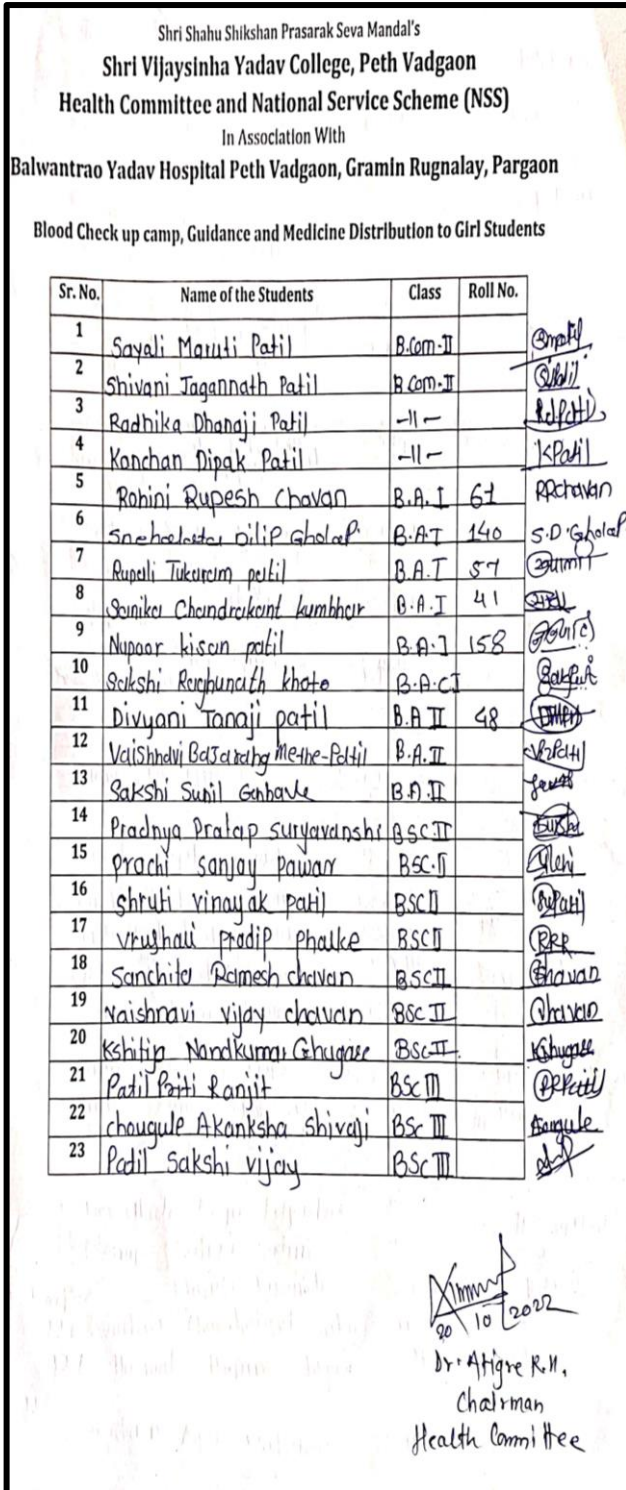 Shri Shahu Shikshan Prasarak Seva Mandal's
Shri Vijaysinha Yadav College, Peth Vadgaon
Health Committee and National Service Scheme (NSS)
In Association With
Balwantrao Yadav Hospital Peth Vadgaon, Gramin Rugnalay, Pargaon
Blood Check up camp, Guidance and Medicine Distribution to Girl Students
Sr. No. Name of the Students Class Roll No.
1 Sayali Maruti Patil B.Com-II
2 Shivani Jagannath Patil B com-II
3 Radhika Dhanaji Patil -11-
4 Kanchan Dipak Patil -11- KPatil
5 Rohini Rupesh Chavan B.A. I 61 RRchavan
6 Snehalata Dilip Gholap B.A.I 140 S.D.Gholap
7 Rupali Tukaram patil B.A.I 57
8 Sanika Chandrakant kumbhar B.A.I 41
9 Nupoor kisan patil B.A.I 158
10 Sakshi Raghunath khote B.A.CI
11 Divyani Tanaji patil B.A II 48
12 Vaishnavi Bajarang Methe-Patil B.A.II
13 Sakshi Sunil B.A.II
14 Pradnya Pratap suryavanshi BSC II
15 prachi sanjay pawar BSC.II
16 shruti vinayak patil BSC II
17 vrushali pradip phalke BSC II RRR
18 Sanchita Ramesh chavan BSC II Chavan
19 vaishnavi vijay chavan BSC II Chavan
20 Kshitija Nandkumar Ghugare BSc II
21 Patil Priti Ranjit BSc III PRPatil
22 chougule Akanksha Shivaji BSc III
23 Patil Sakshi vijay BSC III
20 10 2022
Dr. Atigre R.H.
Chairman
Health Committee